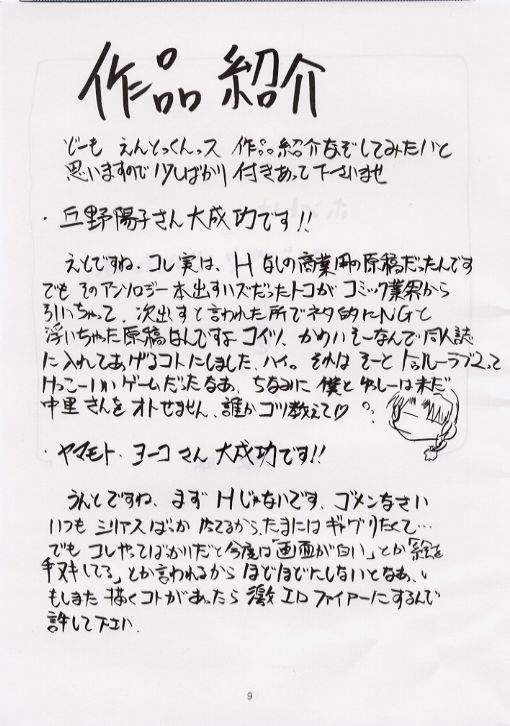 作品紹介
どーも えんとっくんっス 作品紹介なぞしてみたいと
思いますので少しばかり付きあって下さいませ
・丘野陽子さん大成功です!!
えとですね、コレ実は、Hなしの商業用の原稿だったんです
でも そのアンソロジー本出すハズだったトコが コミック業界から
引いちゃって、次出すと言われた所でネタ的にNGと
浮いちゃった原稿なんですよ コイツ、かわいそーなんで同人誌
に入れてあげるコトにしました、ハイ。それは そーと トゥルーラブ2って
けっこーいいゲームだったなあ、ちなみに 僕と 少しーは未だ
中里さんを オトせません、誰か コツ教えて♡
・ヤマモト・ヨーコさん 大成功です!!
うんとですね、まず Hじゃないです、ゴメンなさい
いつも シリアスばっか 描てるから、たまにはギャグりたくて…
でも コレやってばかりだと今度は「画面が白い」とか「絵を
手ヌキしてる」とか言われるから ほどほどにしないとなあ、
もしまた 描くコトがあったら 激エロファイアーにするんで
許して下さい.
9